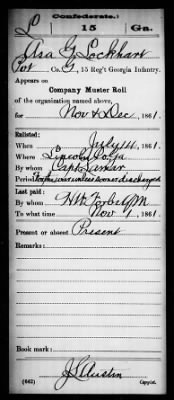 (Confederate.)
L 15 Ga.
Asa G Lockhart
Pvt, Co. G, 15 Reg't Georgia Infantry.
Appears on
Company Muster Roll
of the organization named above,
for Nov & Dec, 1861.
Enlisted:
When July 14, 1861.
Where Lincoln Co. Ga
By whom Capt Lamar
Period For the war unless sooner discharged
Last paid:
By whom
To what time Nov 1, 1861.
Present or absent Present
Remarks:
Book mark:
J S Austin
(642) Copyist.